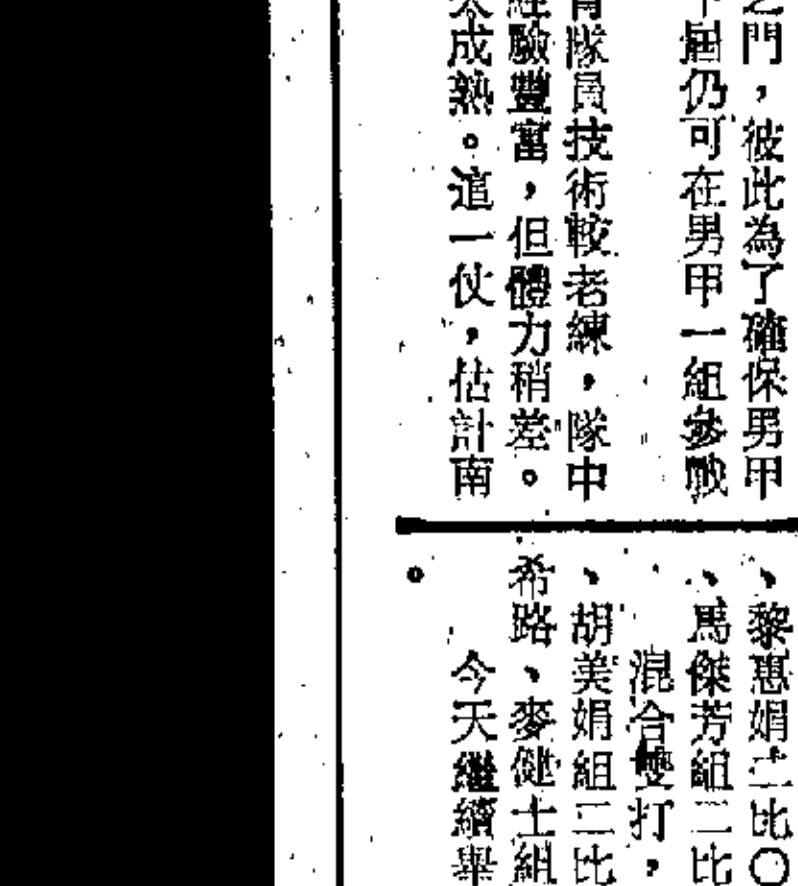 門，彼此為了確保男甲
屆仍可在男甲一組參戰
隊員技術較老練，隊中
驗豐富，但體力稍差。
成熟。這一仗，估計南
、黎惠娟二比〇
、馬傑芳組二比
混合雙打，
、胡美娟組二比
希路、麥健士組
今天繼續舉
。